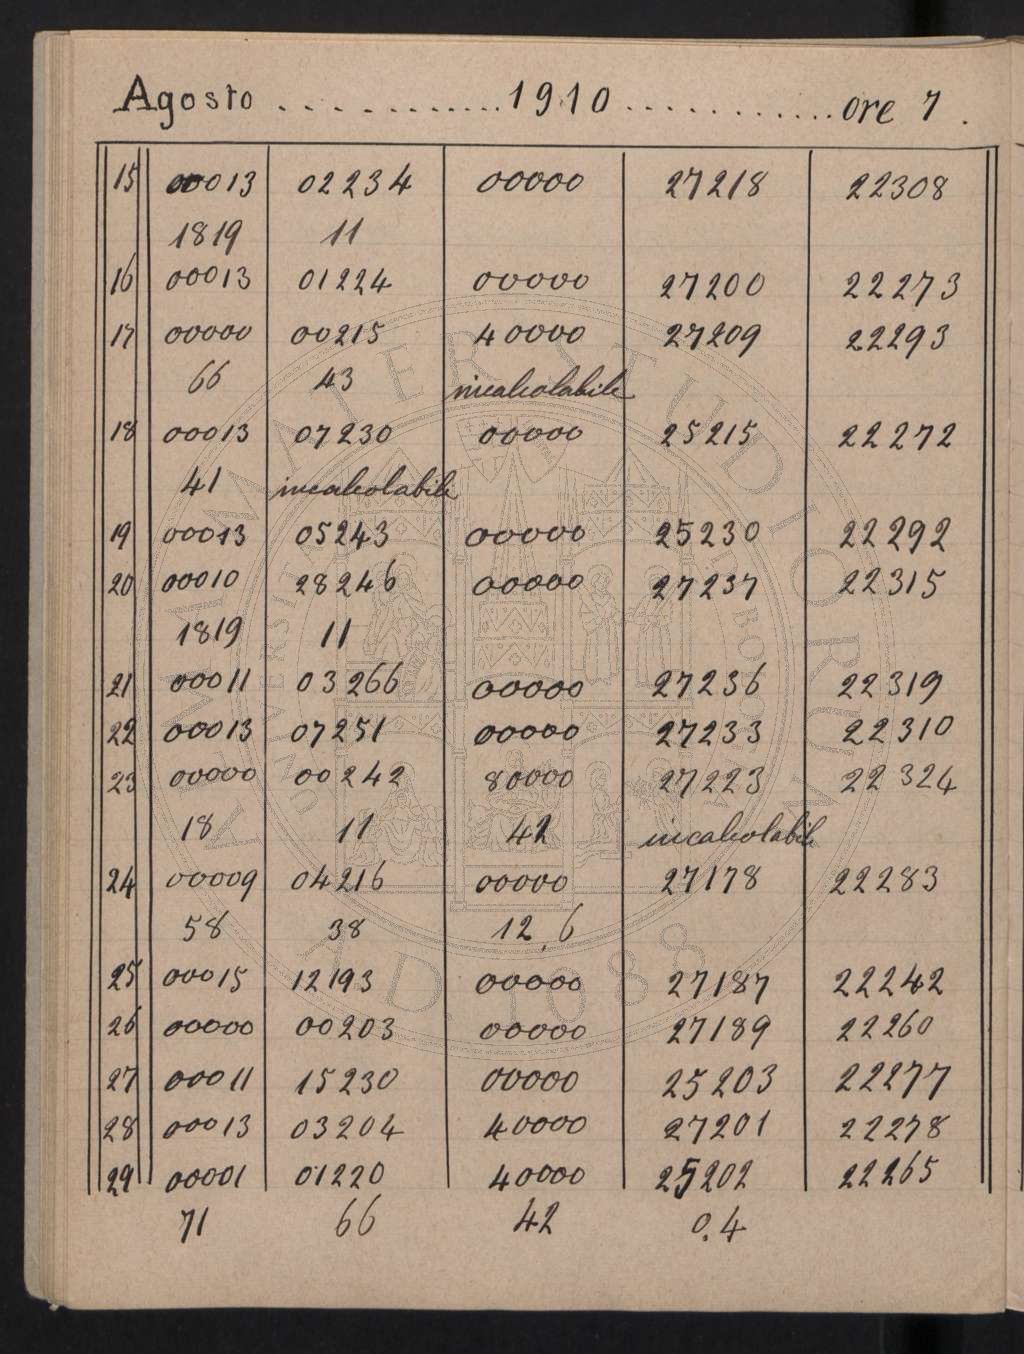 Agosto . . . . . . . . . . . 1910 . . . . . . . . . . . ore 7.
15 00013 02234 00000 27218 22308
1819 11
16 00013 01224 00000 27200 22273
17 00000 00215 40000 27209 22293
66 43 incalcolabile
18 00013 07230 00000 25215 22272
41 incalcolabile
19 00013 05243 00000 25230 22292
20 00010 28246 00000 27237 22315
1819 11
21 00011 03266 00000 27236 22319
22 00013 07251 00000 27233 22310
23 00000 00242 80000 27223 22324
18 11 42 incalcolabile
24 00009 04216 00000 27178 22283
58 38 12.6
25 00015 12193 00000 27187 22242
26 00000 00203 00000 27189 22260
27 00011 15230 00000 25203 22277
28 00013 03204 40000 27201 22278
29 00001 01220 40000 25202 22265
71 66 42 0.4
ALMA MATER STUDIORUM
A.D. 1088